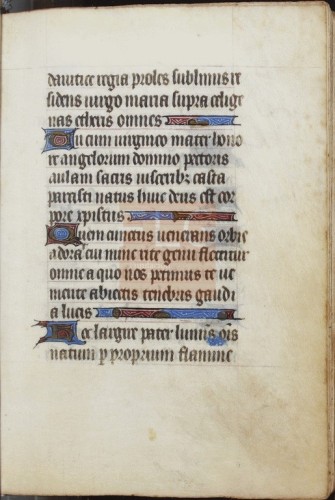 dauitice regia proles sublimis re
sidens uirgo maria supra celige
nas etheris omnes
Tu cum uirgineo mater hono
re angelorum domino pectoris
aulam sacris uisceribz casta
parasti natus hinc deus est cor
pore xpistus
Quem cunctus uenerans orbis
adorat cui nunc rite genu flectitur
omne a quo nos petimus te ue
niente abiectis tenebris gaudi
a lucis
Hec largire pater luminis oīs
natum ꝑ proprium flamine